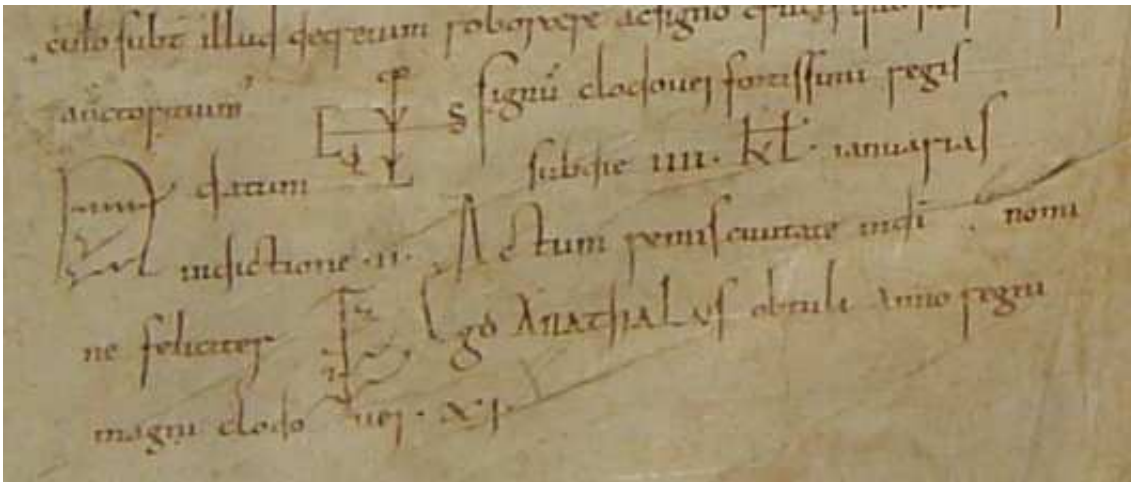 culo subt illud decretum roborare ac signo crucis
auctoritatum signū clodouei fortissimi regis
datum sub die IIII · kł · ianuarias
indictione · II · Actum remis ciuitate in dī nomi
ne feliciter Ego ANAThALVS obtuli anno regni
magni clodo uei · XI ·